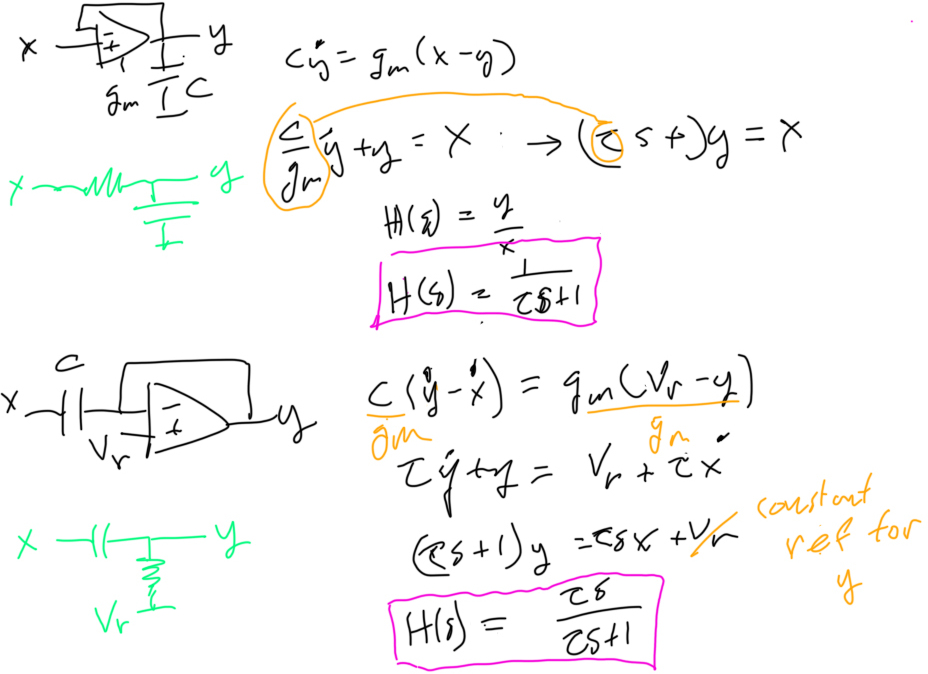 x - + y
gm C
Cẏ = gm(x-y)
C/gm ẏ + y = x → (τs+)y = x
x y
H(s) = y/x
H(s) = 1/τs+1
C
x - + y
Vr
C/gm (ẏ-ẋ) = gm(Vr-y)/gm
τẏ+y = Vr + τẋ
(τs+1)y = τsx + Vr
constant
ref for
y
x y
Vr
H(s) = τs/τs+1